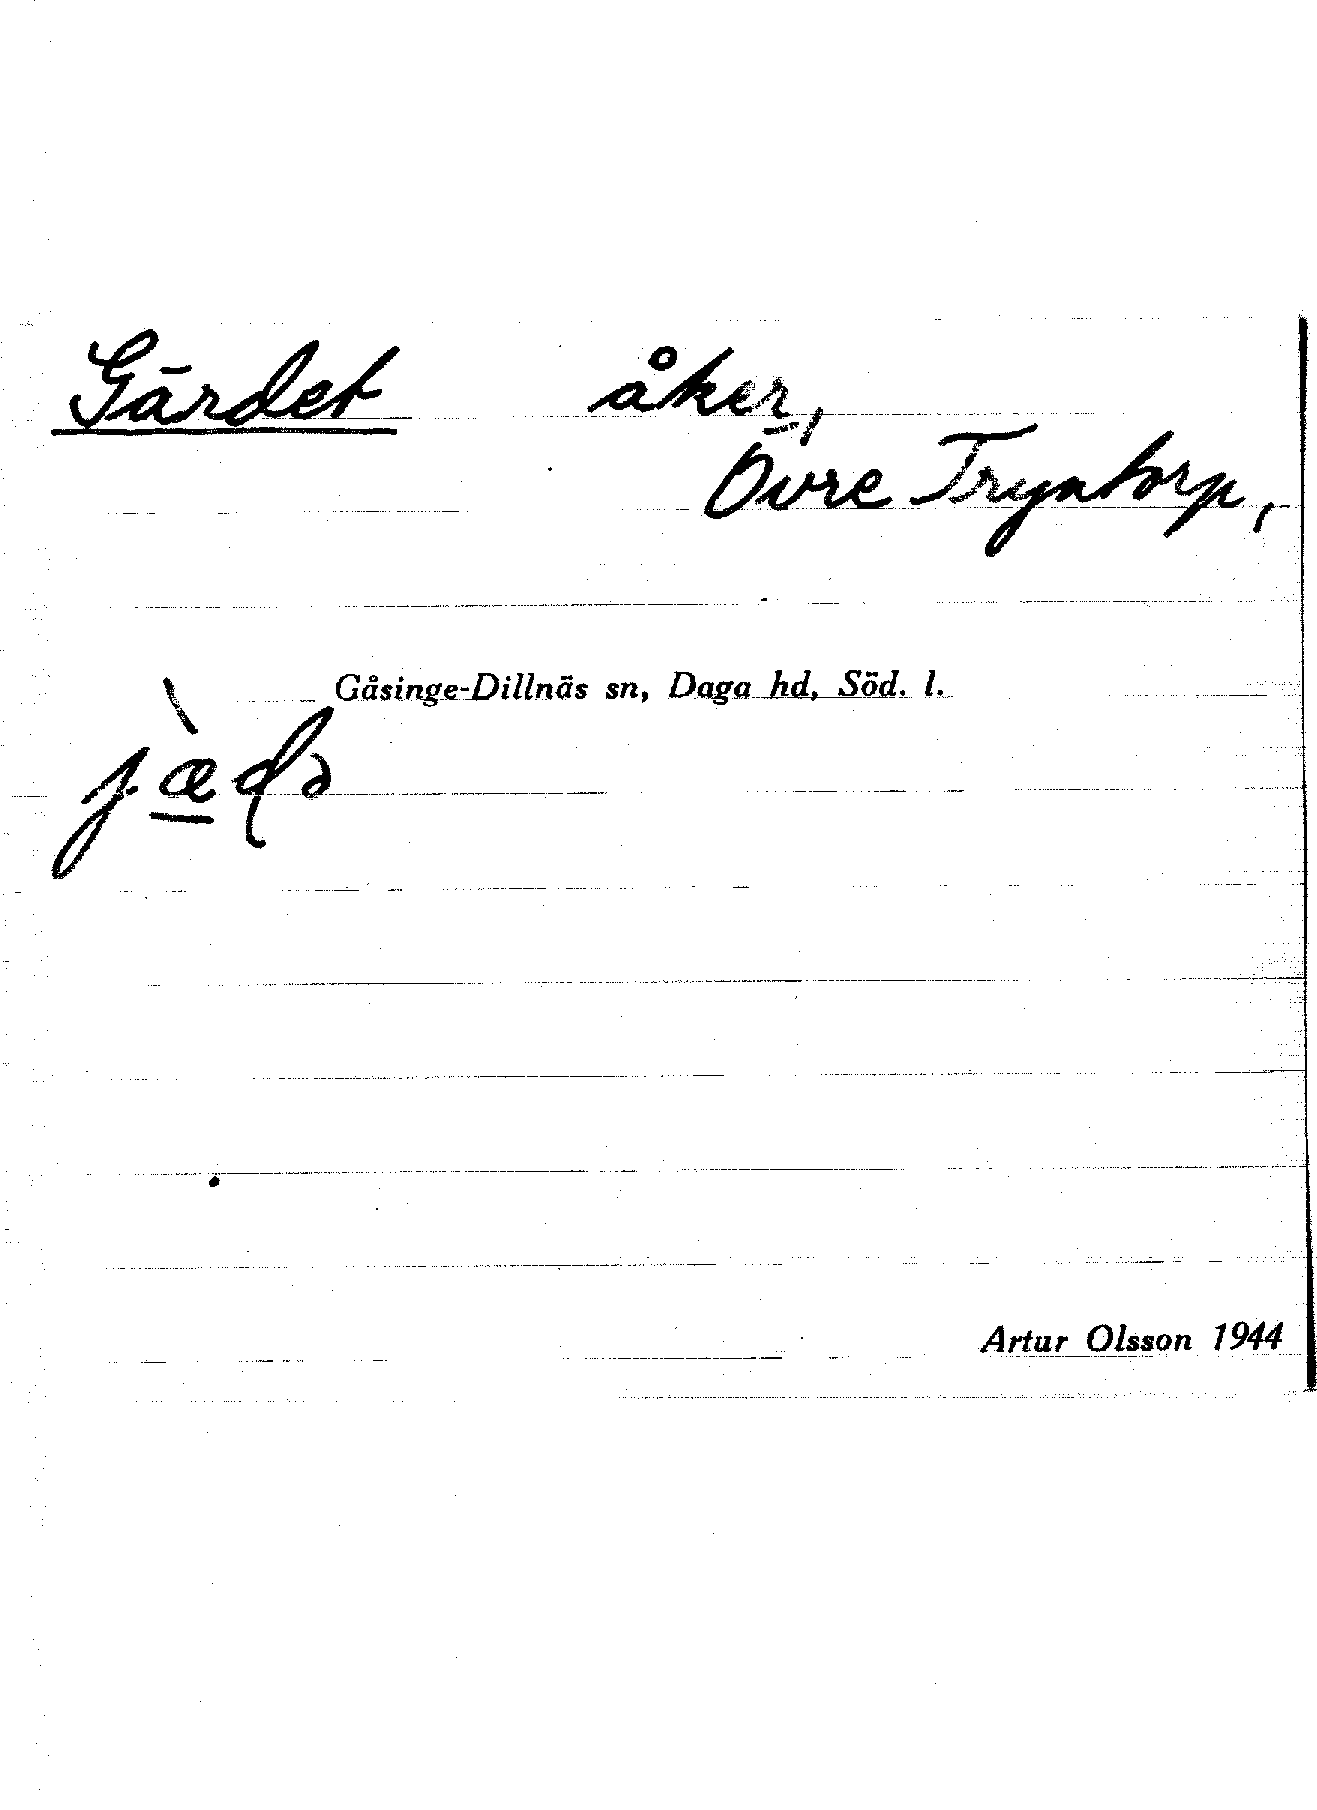 Gärdet åker,
Övre Tryntorp,
Gåsinge-Dillnäs sn, Daga hd, Söd. l.
Artur Olsson 1944